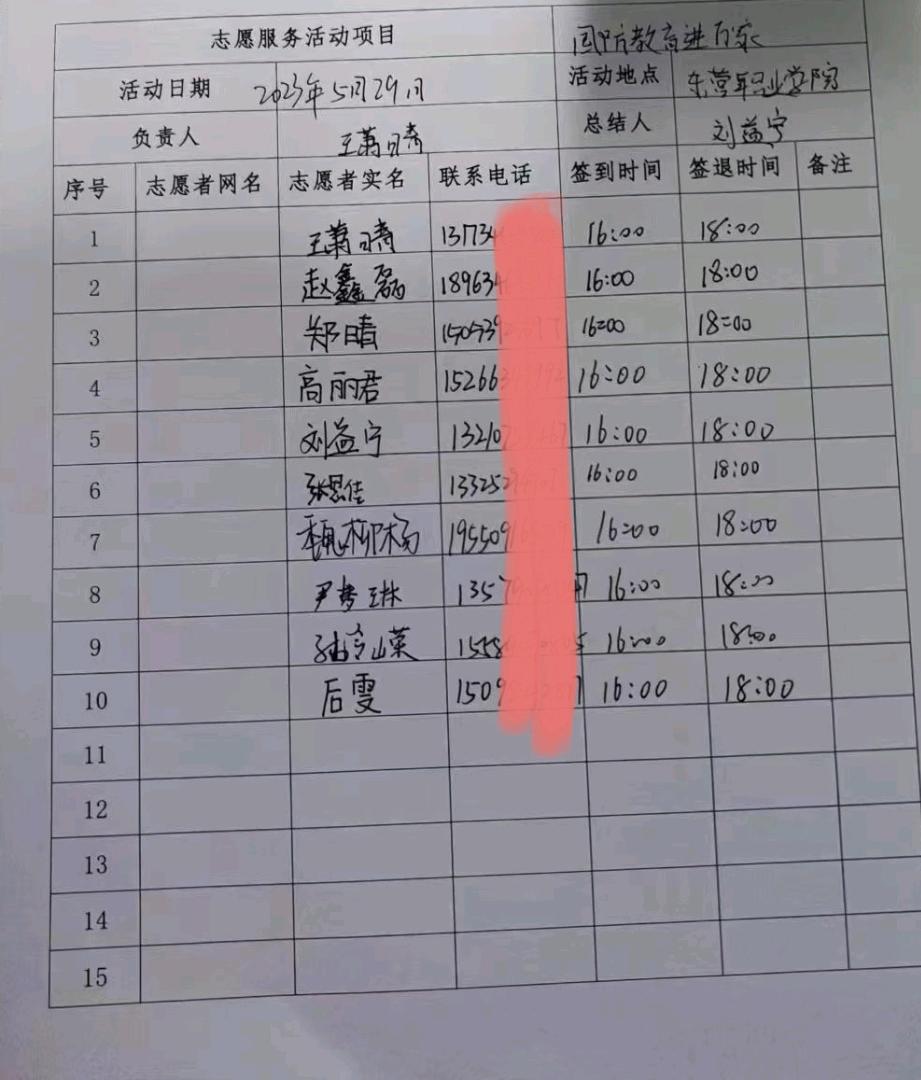 志愿服务活动项目 国防教育进万家
活动日期 2023年5月29日 活动地点 东营职业学院
负责人 王萧晴 总结人 刘益宁
序号 志愿者网名 志愿者实名 联系电话 签到时间 签退时间 备注
1 王萧晴 13734 16:00 18:00
2 赵鑫磊 189634 16:00 18:00
3 郑晴 1505392 16:00 18:00
4 高丽君 15266 16:00 18:00
5 刘益宁 13210 16:00 18:00
6 张思佳 133252 16:00 18:00
7 魏柳杨 1955091 16:00 18:00
8 尹梦琳 1357 16:00 18:00
9 16:00 18:00
10 后雯 1509 16:00 18:00
11
12
13
14
15